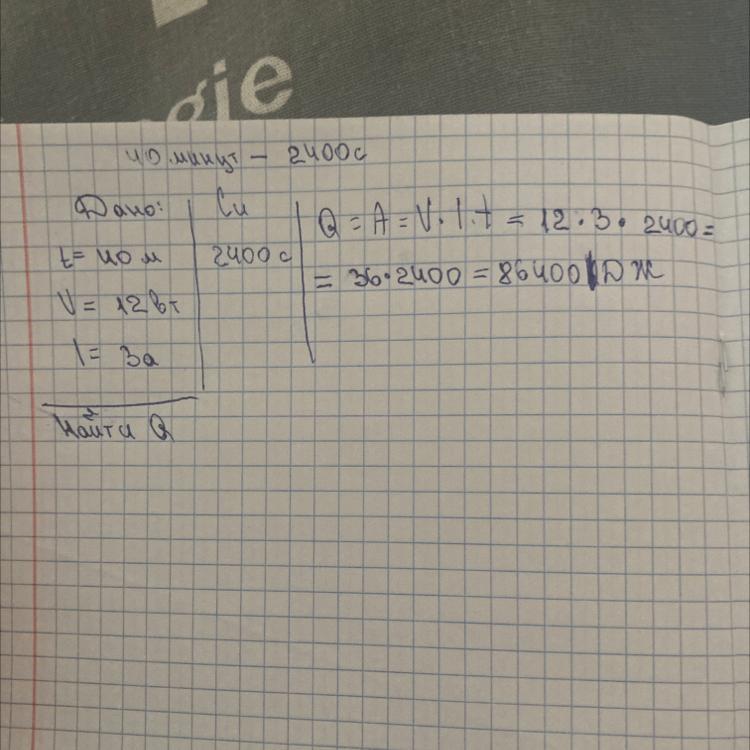 gie
40 минут — 2400с
Дано:
t = 40 м
V = 12вт
I = 3а
Найти Q
Си
2400 с
Q = A = V · I · t = 12 · 3 · 2400 =
= 36 · 2400 = 86400 Дж